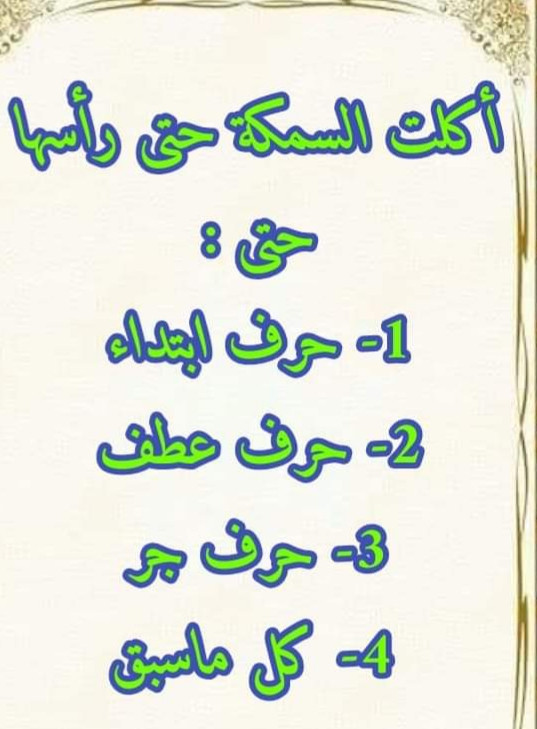 أكلت السمكة حتى رأسها
حتى :
1- حرف ابتداء
2- حرف عطف
3- حرف جر
4- كل ماسبق